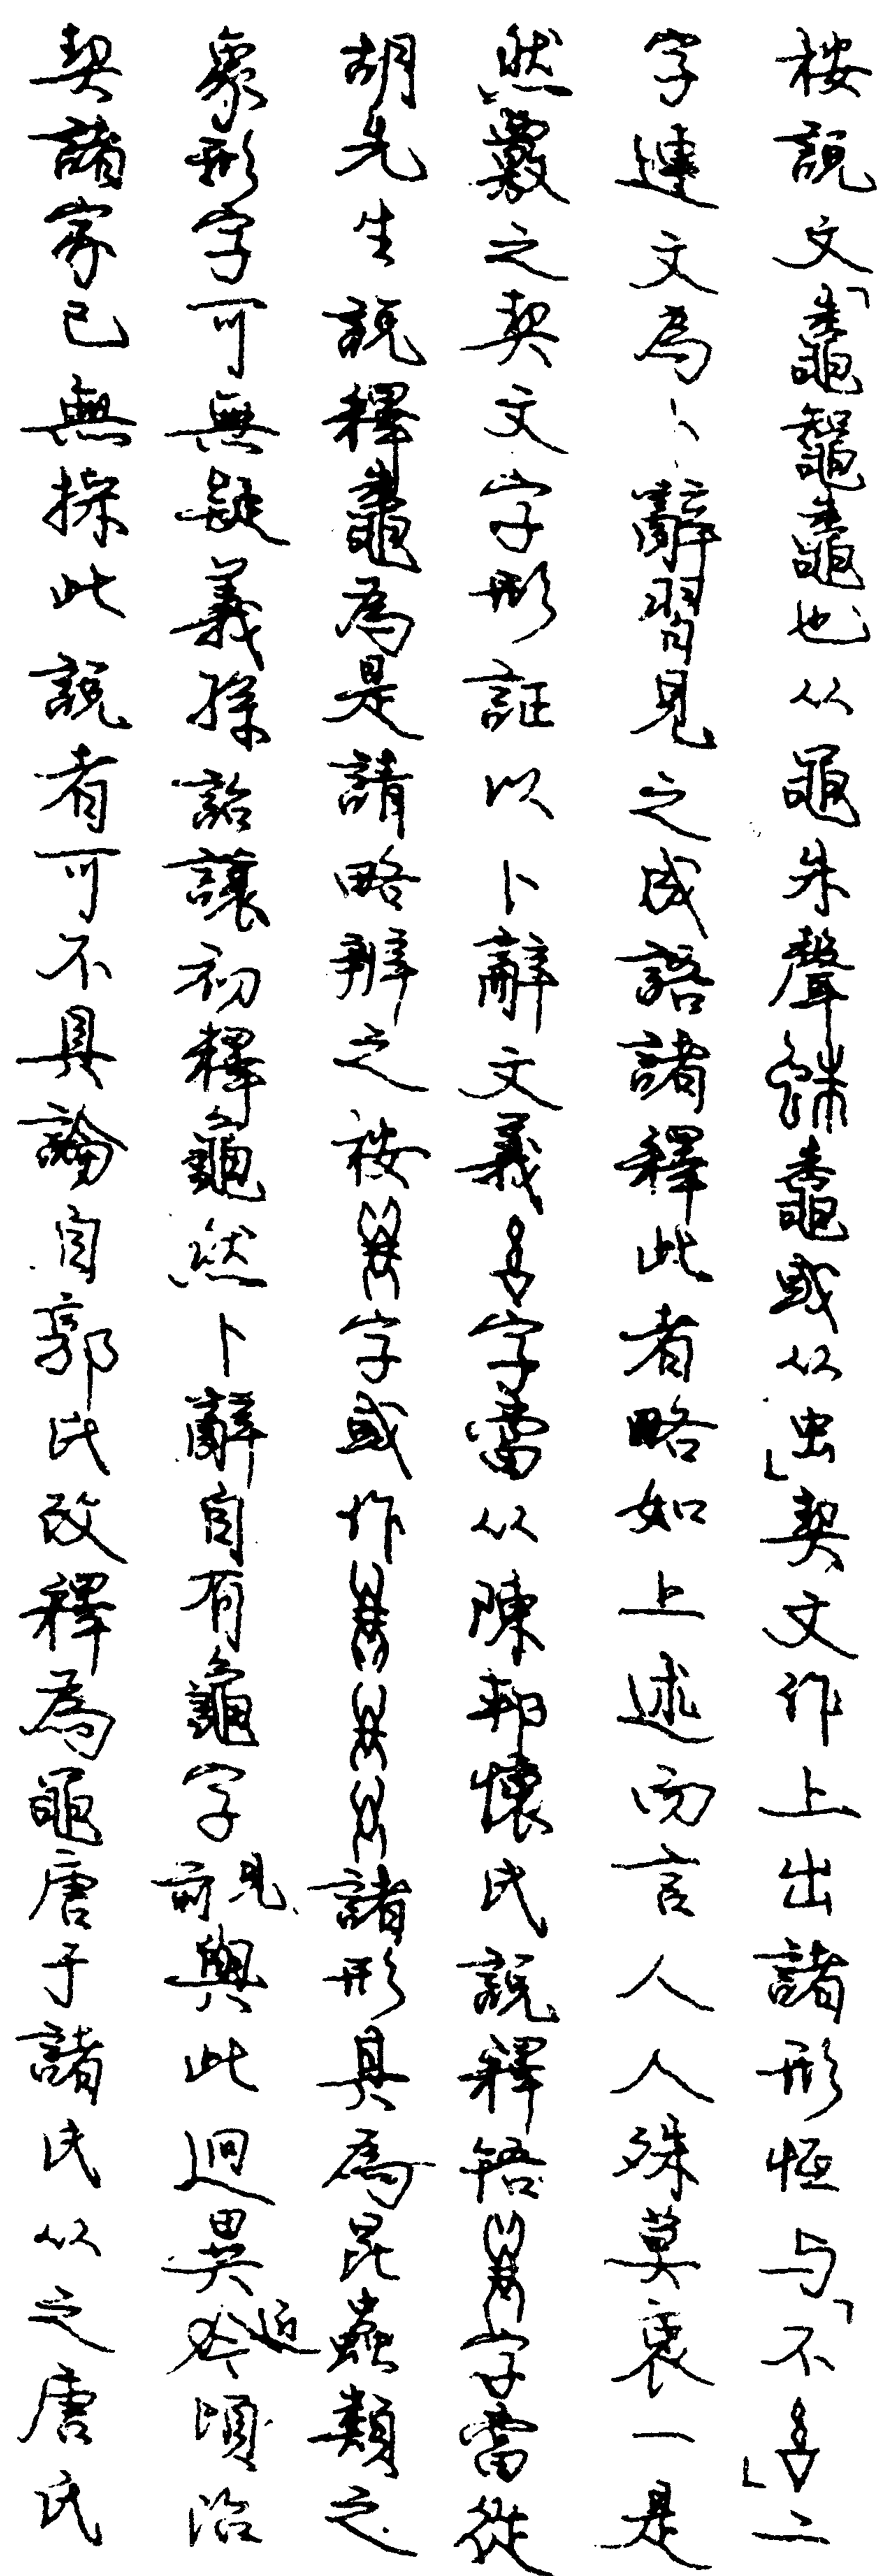 桉說文「鼄䵹鼄也从黽朱聲鼄或从虫」契文作上出諸形恆与「不」二
字連文為卜辭習見之成語諸釋此者略如上述而言人人殊莫衷一是
然覈之契文字形証以卜辭文義字當从陳邦懷氏說釋䥏字當從
胡先生說釋鼄為是請略辨之桉字或作諸形具為昆蟲類之
象形字可無疑義孫詒讓初釋龜然卜辭自有龜字見前與此迥異近頃治
契諸家已無操此說者可不具論自郭氏改釋為黽唐于諸氏从之唐氏